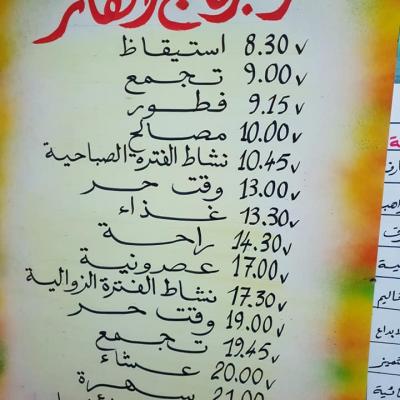 8.30 استيقاظ
9.00 تجمع
9.15 فطور
10.00 مصالح
10.45 نشاط الفترة الصباحية
13.00 وقت حر
13.30 غذاء
14.30 راحة
17.00 عصرونية
17.30 نشاط الفترة الزوالية
19.00 وقت حر
19.45 تجمع
20.00 عشاء
21.00 سهرة